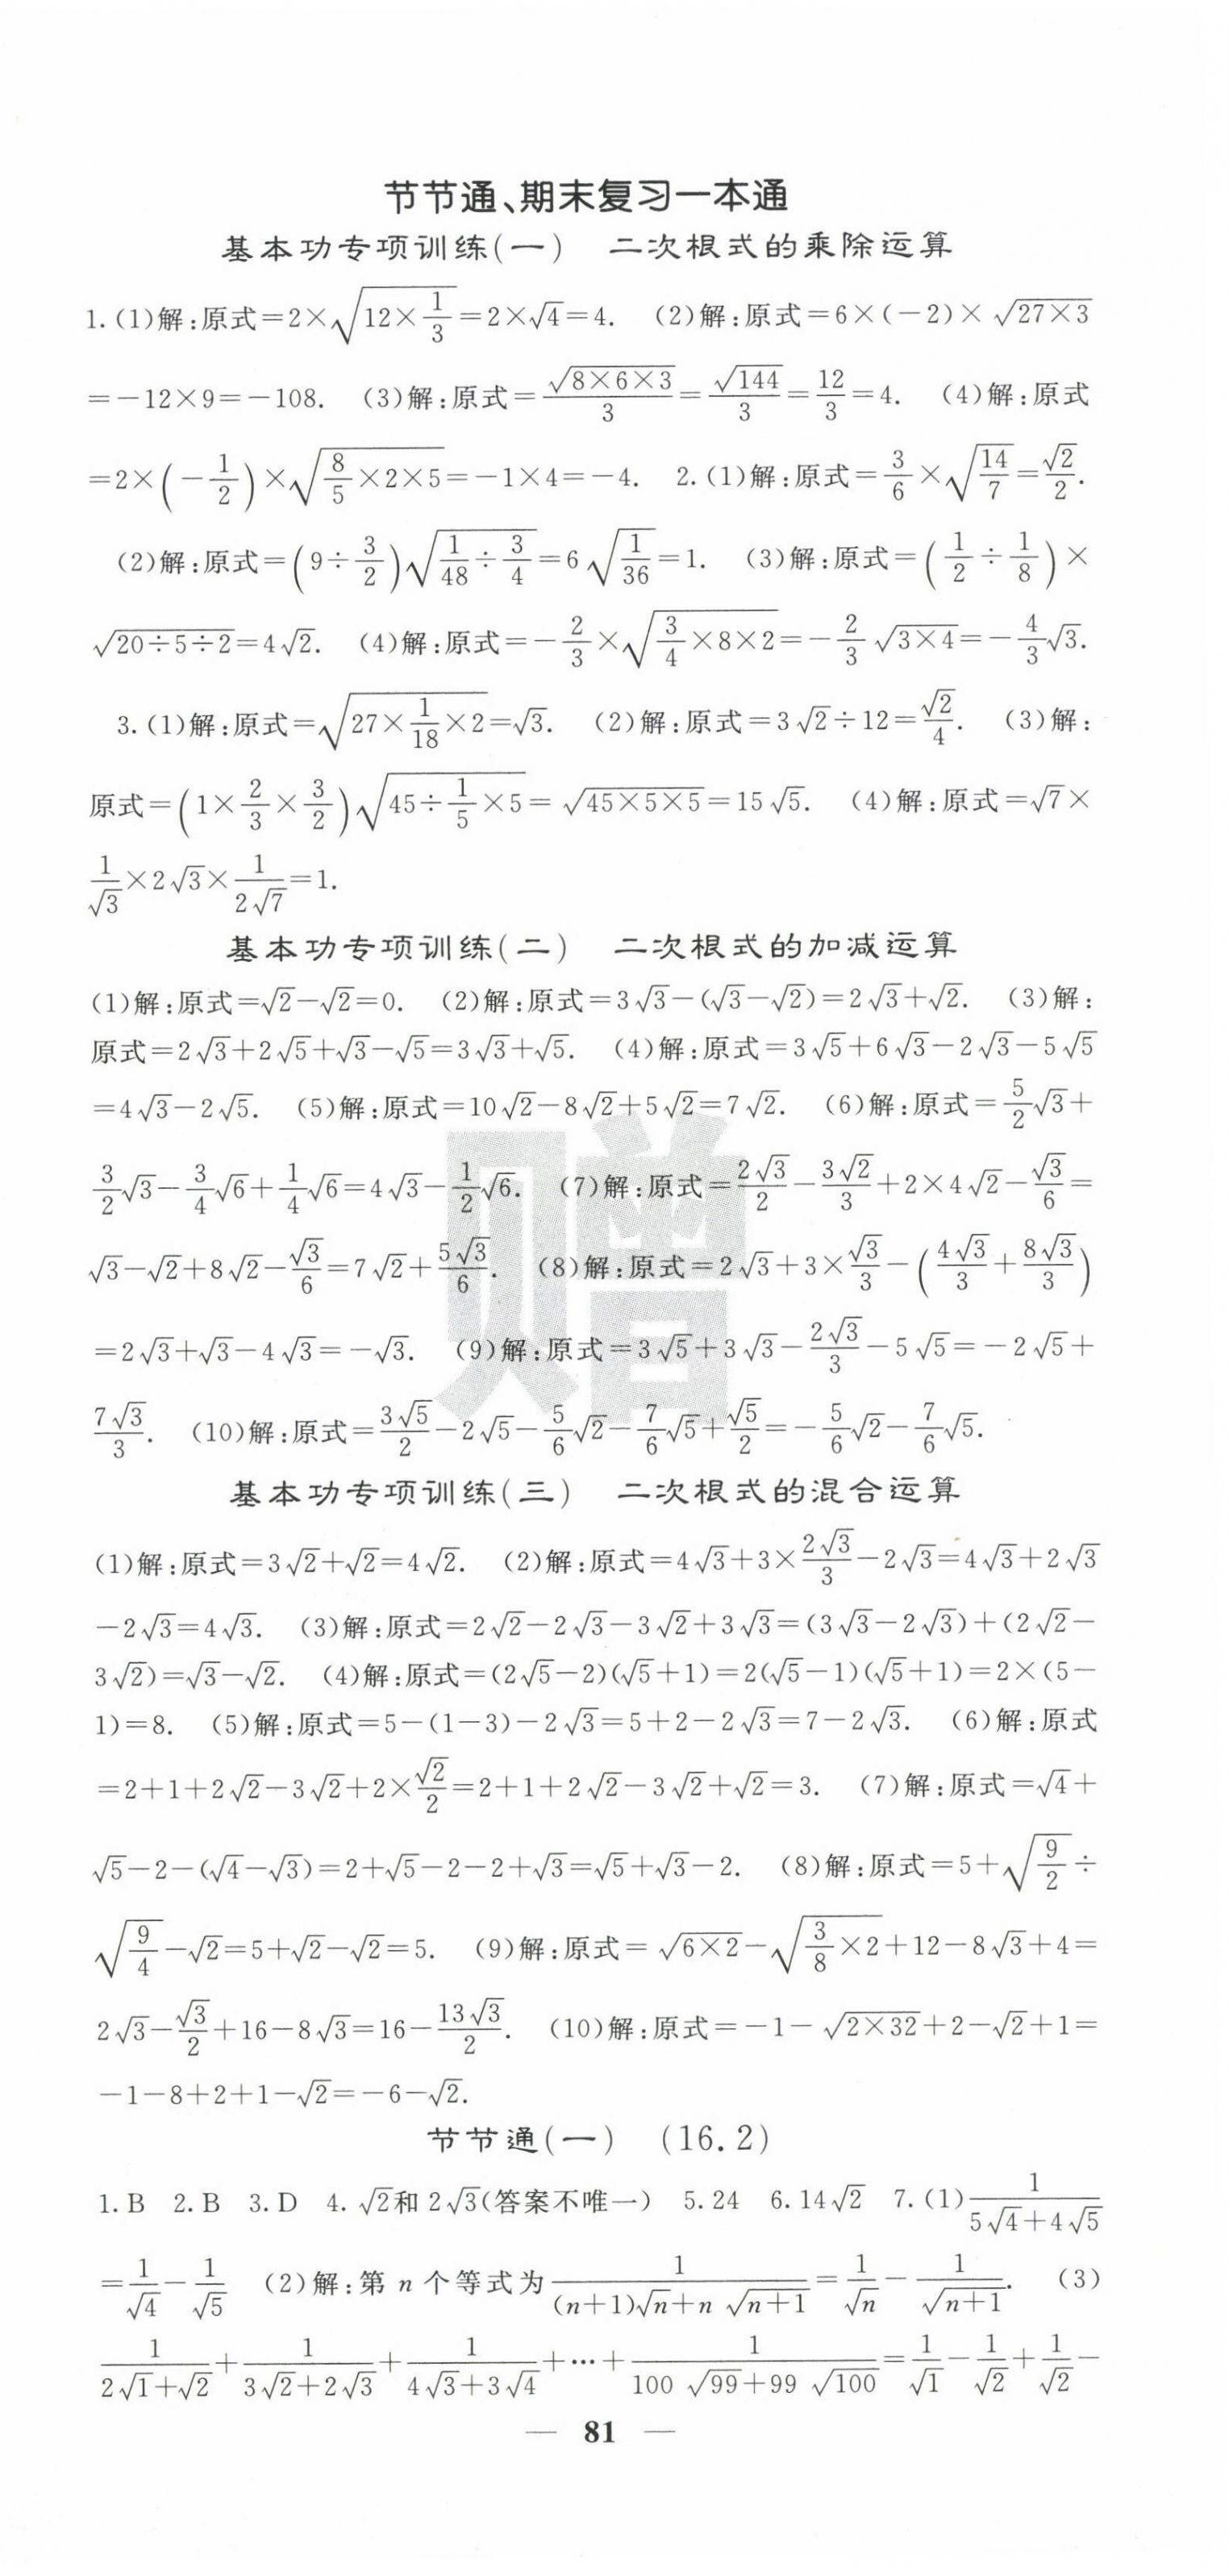 节节通、期末复习一本通
基本功专项训练(一)　二次根式的乘除运算
1.(1)解:原式=2×√(12×1/3)=2×√4=4.　(2)解:原式=6×(-2)×√(27×3)
=-12×9=-108.　(3)解:原式=√(8×6×3)/3=√144/3=12/3=4.　(4)解:原式
=2×(-1/2)×√(8/5×2×5)=-1×4=-4.　2.(1)解:原式=3/6×√(14/7)=√2/2.
(2)解:原式=(9÷3/2)√(1/48÷3/4)=6√(1/36)=1.　(3)解:原式=(1/2÷1/8)×
√(20÷5÷2)=4√2.　(4)解:原式=-2/3×√(3/4×8×2)=-2/3√(3×4)=-4/3√3.
3.(1)解:原式=√(27×1/18×2)=√3.　(2)解:原式=3√2÷12=√2/4.　(3)解:
原式=(1×2/3×3/2)√(45÷1/5×5)=√(45×5×5)=15√5.　(4)解:原式=√7×
1/√3×2√3×1/(2√7)=1.
基本功专项训练(二)　二次根式的加减运算
(1)解:原式=√2-√2=0.　(2)解:原式=3√3-(√3-√2)=2√3+√2.　(3)解:
原式=2√3+2√5+√3-√5=3√3+√5.　(4)解:原式=3√5+6√3-2√3-5√5
=4√3-2√5.　(5)解:原式=10√2-8√2+5√2=7√2.　(6)解:原式=5/2√3+
3/2√3-3/4√6+1/4√6=4√3-1/2√6.　(7)解:原式=2√3/2-3√2/3+2×4√2-√3/6=
√3-√2+8√2-√3/6=7√2+5√3/6.　(8)解:原式=2√3+3×√3/3-(4√3/3+8√3/3)
=2√3+√3-4√3=-√3.　(9)解:原式=3√5+3√3-2√3/3-5√5=-2√5+
7√3/3.　(10)解:原式=3√5/2-2√5-5/6√2-7/6√5+√5/2=-5/6√2-7/6√5.
赠
基本功专项训练(三)　二次根式的混合运算
(1)解:原式=3√2+√2=4√2.　(2)解:原式=4√3+3×2√3/3-2√3=4√3+2√3
-2√3=4√3.　(3)解:原式=2√2-2√3-3√2+3√3=(3√3-2√3)+(2√2-
3√2)=√3-√2.　(4)解:原式=(2√5-2)(√5+1)=2(√5-1)(√5+1)=2×(5-
1)=8.　(5)解:原式=5-(1-3)-2√3=5+2-2√3=7-2√3.　(6)解:原式
=2+1+2√2-3√2+2×√2/2=2+1+2√2-3√2+√2=3.　(7)解:原式=√4+
√5-2-(√4-√3)=2+√5-2-2+√3=√5+√3-2.　(8)解:原式=5+√(9/2)÷
√(9/4)-√2=5+√2-√2=5.　(9)解:原式=√(6×2)-√(3/8×2)+12-8√3+4=
2√3-√3/2+16-8√3=16-13√3/2.　(10)解:原式=-1-√(2×32)+2-√2+1=
-1-8+2+1-√2=-6-√2.
节节通(一)　(16.2)
1.B　2.B　3.D　4.√2和2√3(答案不唯一)　5.24　6.14√2　7.(1)1/(5√4+4√5)
=1/√4-1/√5　(2)解:第n个等式为1/((n+1)√n+n√(n+1))=1/√n-1/√(n+1).　(3)
1/(2√1+√2)+1/(3√2+2√3)+1/(4√3+3√4)+…+1/(100√99+99√100)=1/√1-1/√2+1/√2-
— 81 —